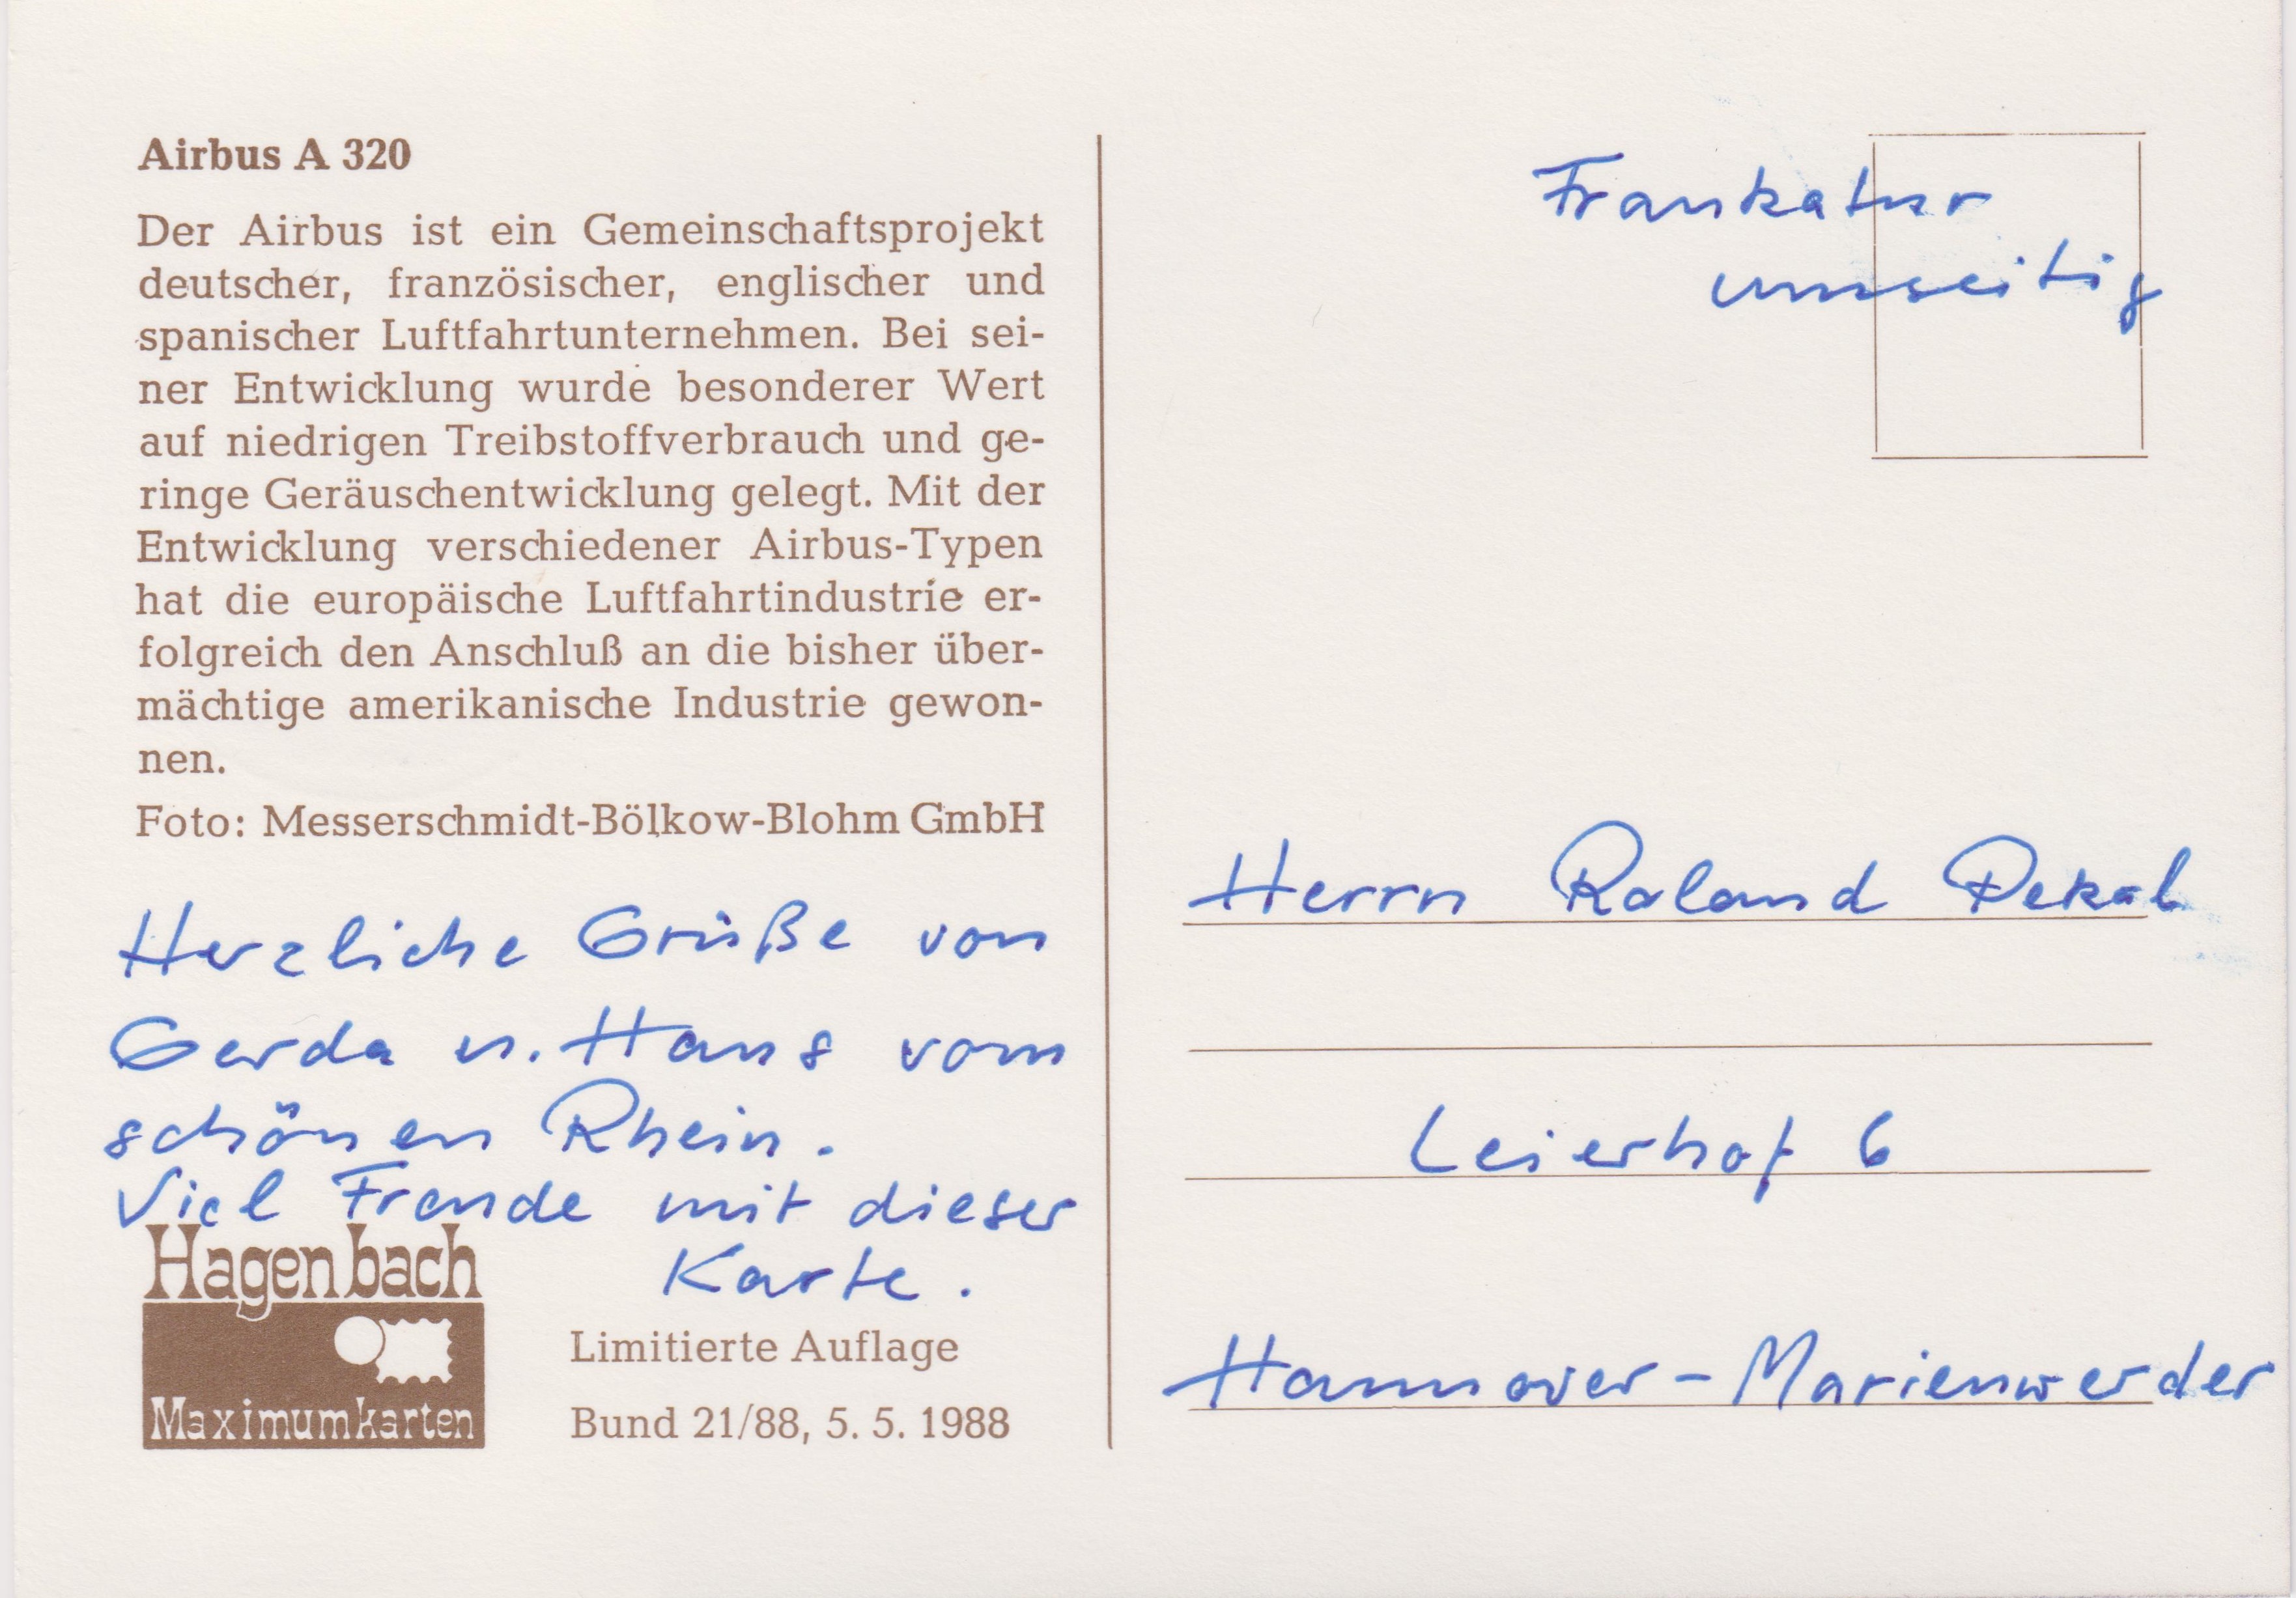 Airbus A 320
Der Airbus ist ein Gemeinschaftsprojekt
deutscher, französischer, englischer und
spanischer Luftfahrtunternehmen. Bei sei-
ner Entwicklung wurde besonderer Wert
auf niedrigen Treibstoffverbrauch und ge-
ringe Geräuschentwicklung gelegt. Mit der
Entwicklung verschiedener Airbus-Typen
hat die europäische Luftfahrtindustrie er-
folgreich den Anschluß an die bisher über-
mächtige amerikanische Industrie gewon-
nen.
Foto: Messerschmidt-Bölkow-Blohm GmbH
Herzliche Grüße von
Gerda u. Hans vom
schönen Rhein.
Viel Freude mit dieser
Karte.
Hagenbach
Maximumkarten
Limitierte Auflage
Bund 21/88, 5. 5. 1988
Frankatur
umseitig
Herrn Roland
Leierhof 6
Hannover-Marienwerder